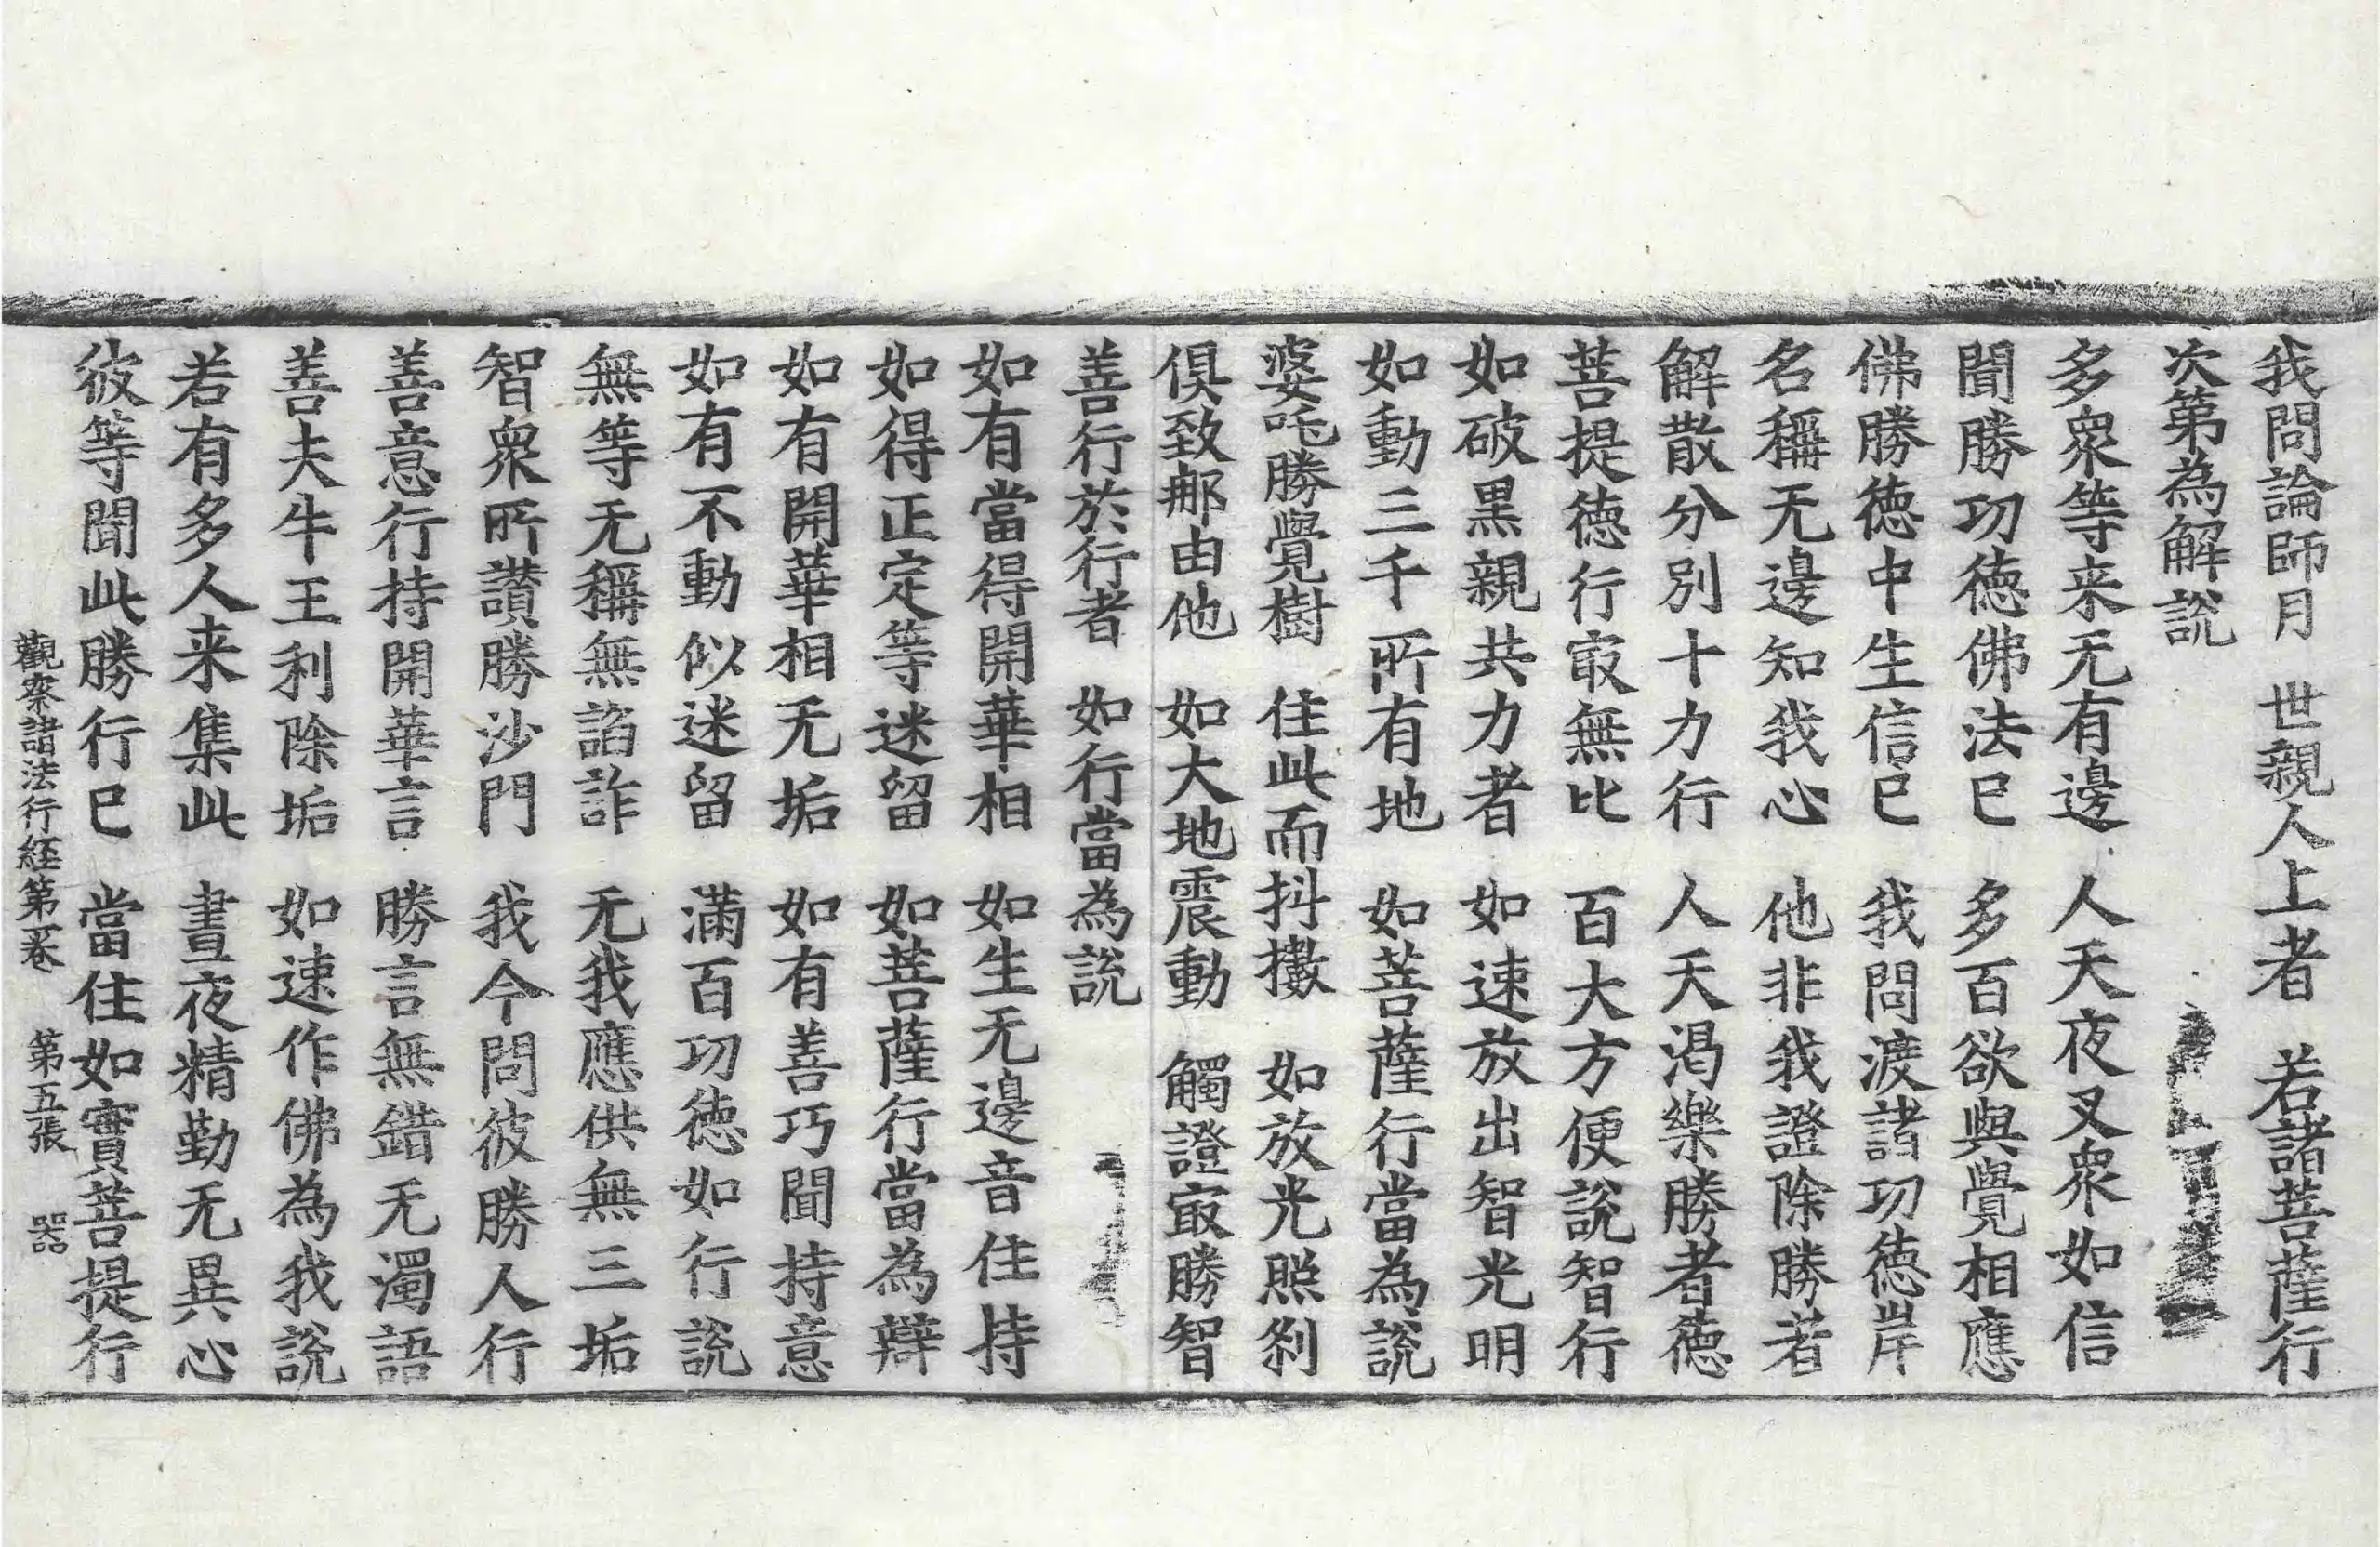 我問論師月　世親人上者　若諸菩薩行
次第為解說
多衆等来无有邊　人天夜叉衆如信
聞勝功德佛法巳　多百欲與覺相應
佛勝德中生信巳　我問渡諸功德岸
名稱无邊知我心　他非我證除勝者
解散分別十力行　人天渴樂勝者德
菩提德行㝡無比　百大方便說智行
如破黒親共力者　如速放出智光明
如動三千所有地　如菩薩行當為說
婆吒勝覺樹　住此而抖擻　如放光照刹
俱致那由他　如大地震動　觸證㝡勝智
善行於行者　如行當為說
如有當得開華相　如生无邊音住持
如得正定等迷留　如菩薩行當為辯
如有開華相无垢　如有善巧聞持意
如有不動似迷留　滿百功德如行說
無等无稱無諂詐　无我應供無三垢
智衆所讃勝沙門　我今問彼勝人行
善意行持開華言　勝言無錯无濁語
善夫牛王利除垢　如速作佛為我說
若有多人来集此　晝夜精勤无異心
彼等聞此勝行巳　當住如實菩提行
觀察諸法行經第一卷　第五張　器